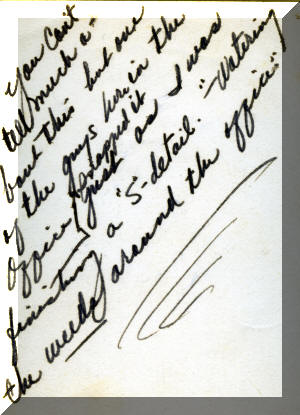 You Can't
tell much a-
bout this but one
of the guys here in the
Office, snapped it
just as I was
finishing a "S"-detail. "Watering
the weeds around the office"